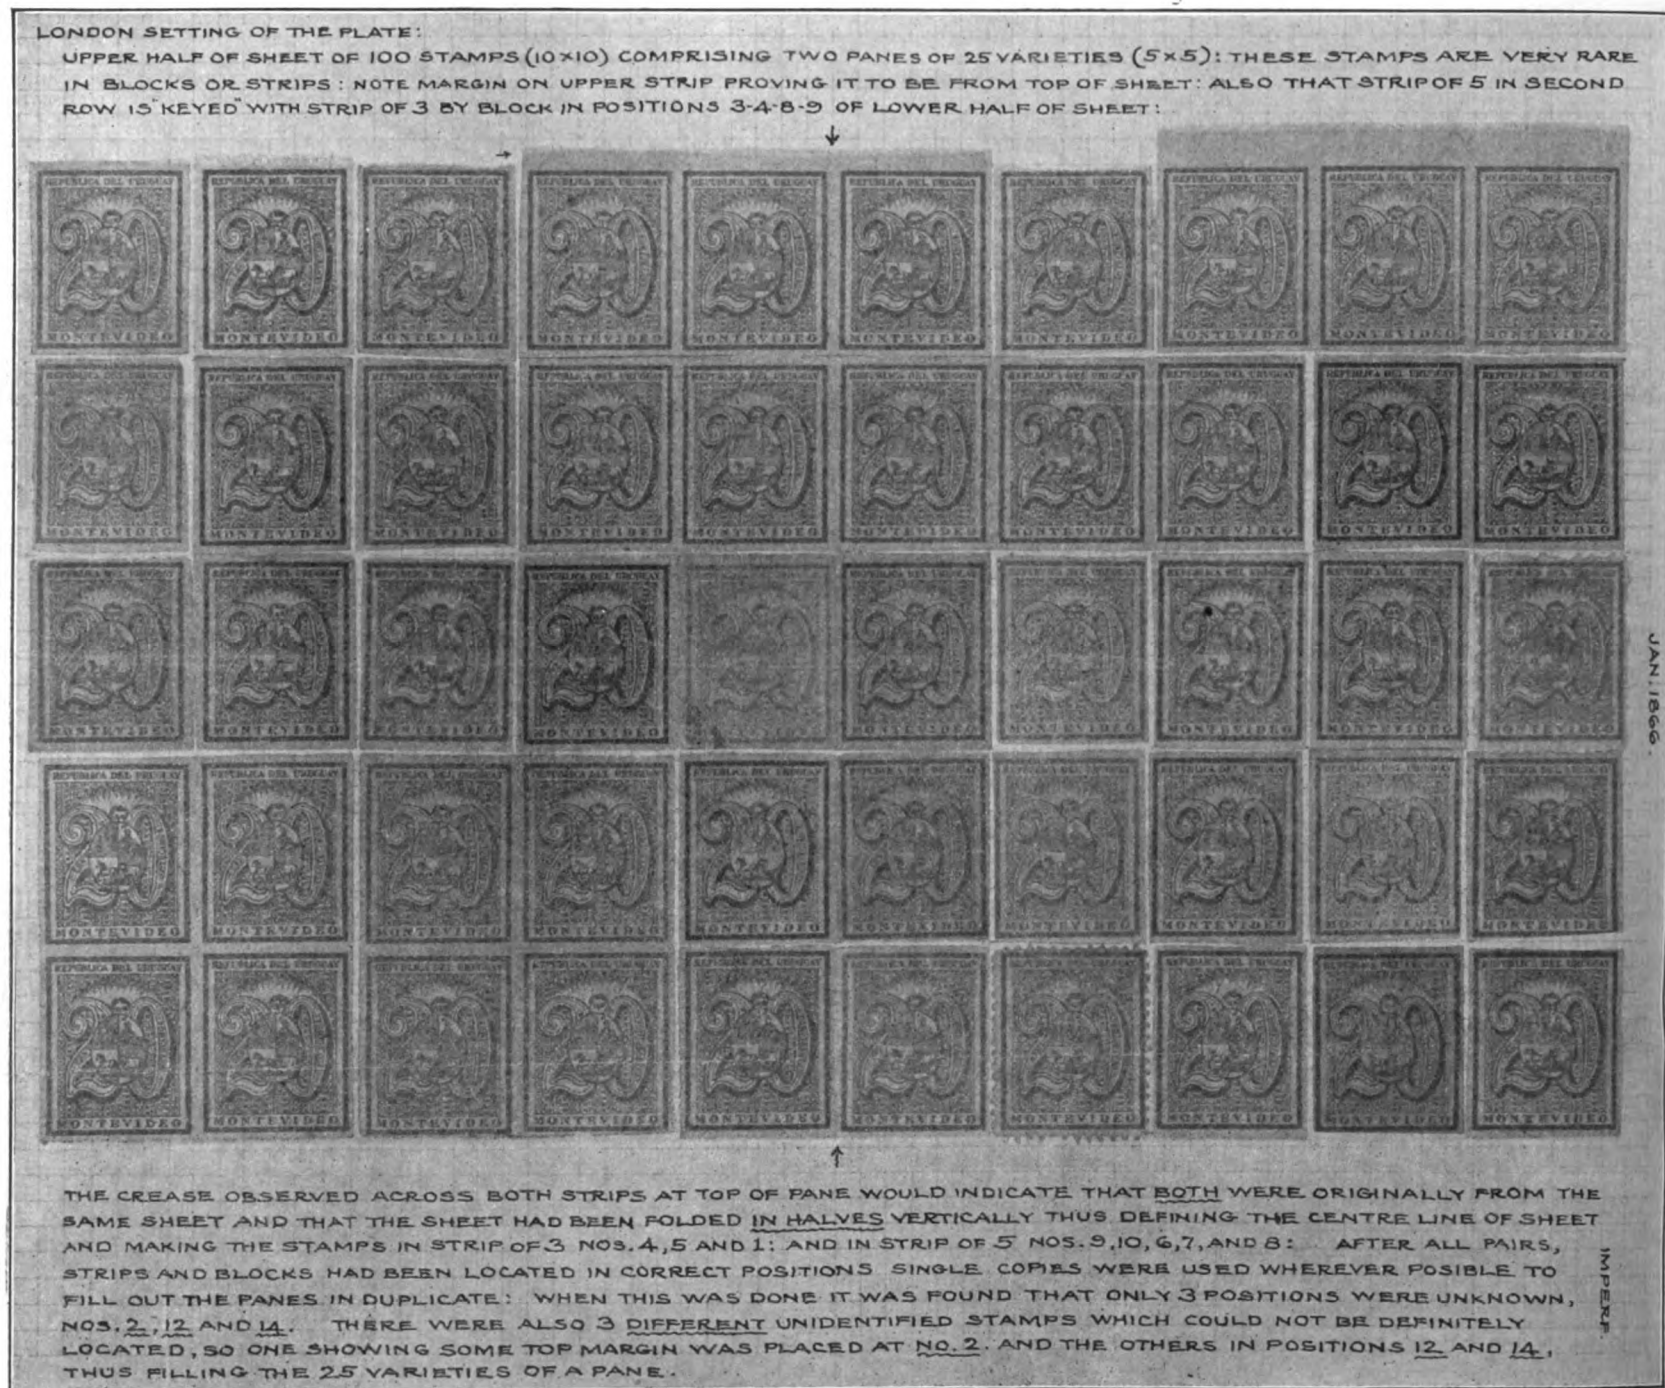 LONDON SETTING OF THE PLATE:
UPPER HALF OF SHEET OF 100 STAMPS (10×10) COMPRISING TWO PANES OF 25 VARIETIES (5×5): THESE STAMPS ARE VERY RARE
IN BLOCKS OR STRIPS: NOTE MARGIN ON UPPER STRIP PROVING IT TO BE FROM TOP OF SHEET: ALSO THAT STRIP OF 5 IN SECOND
ROW IS "KEYED" WITH STRIP OF 3 BY BLOCK IN POSITIONS 3-4-8-9 OF LOWER HALF OF SHEET:
REPUBLICA DEL URUGUAY
20
MONTEVIDEO
JAN: 1866.
THE CREASE OBSERVED ACROSS BOTH STRIPS AT TOP OF PANE WOULD INDICATE THAT BOTH WERE ORIGINALLY FROM THE
SAME SHEET AND THAT THE SHEET HAD BEEN FOLDED IN HALVES VERTICALLY THUS DEFINING THE CENTRE LINE OF SHEET
AND MAKING THE STAMPS IN STRIP OF 3 NOS. 4, 5 AND 1: AND IN STRIP OF 5 NOS. 9, 10, 6, 7, AND 8: AFTER ALL PAIRS,
STRIPS AND BLOCKS HAD BEEN LOCATED IN CORRECT POSITIONS SINGLE COPIES WERE USED WHEREVER POSIBLE TO
FILL OUT THE PANES IN DUPLICATE: WHEN THIS WAS DONE IT WAS FOUND THAT ONLY 3 POSITIONS WERE UNKNOWN,
NOS. 2, 12 AND 14. THERE WERE ALSO 3 DIFFERENT UNIDENTIFIED STAMPS WHICH COULD NOT BE DEFINITELY
LOCATED, SO ONE SHOWING SOME TOP MARGIN WAS PLACED AT NO. 2. AND THE OTHERS IN POSITIONS 12 AND 14,
THUS FILLING THE 25 VARIETIES OF A PANE.
IMPERF.